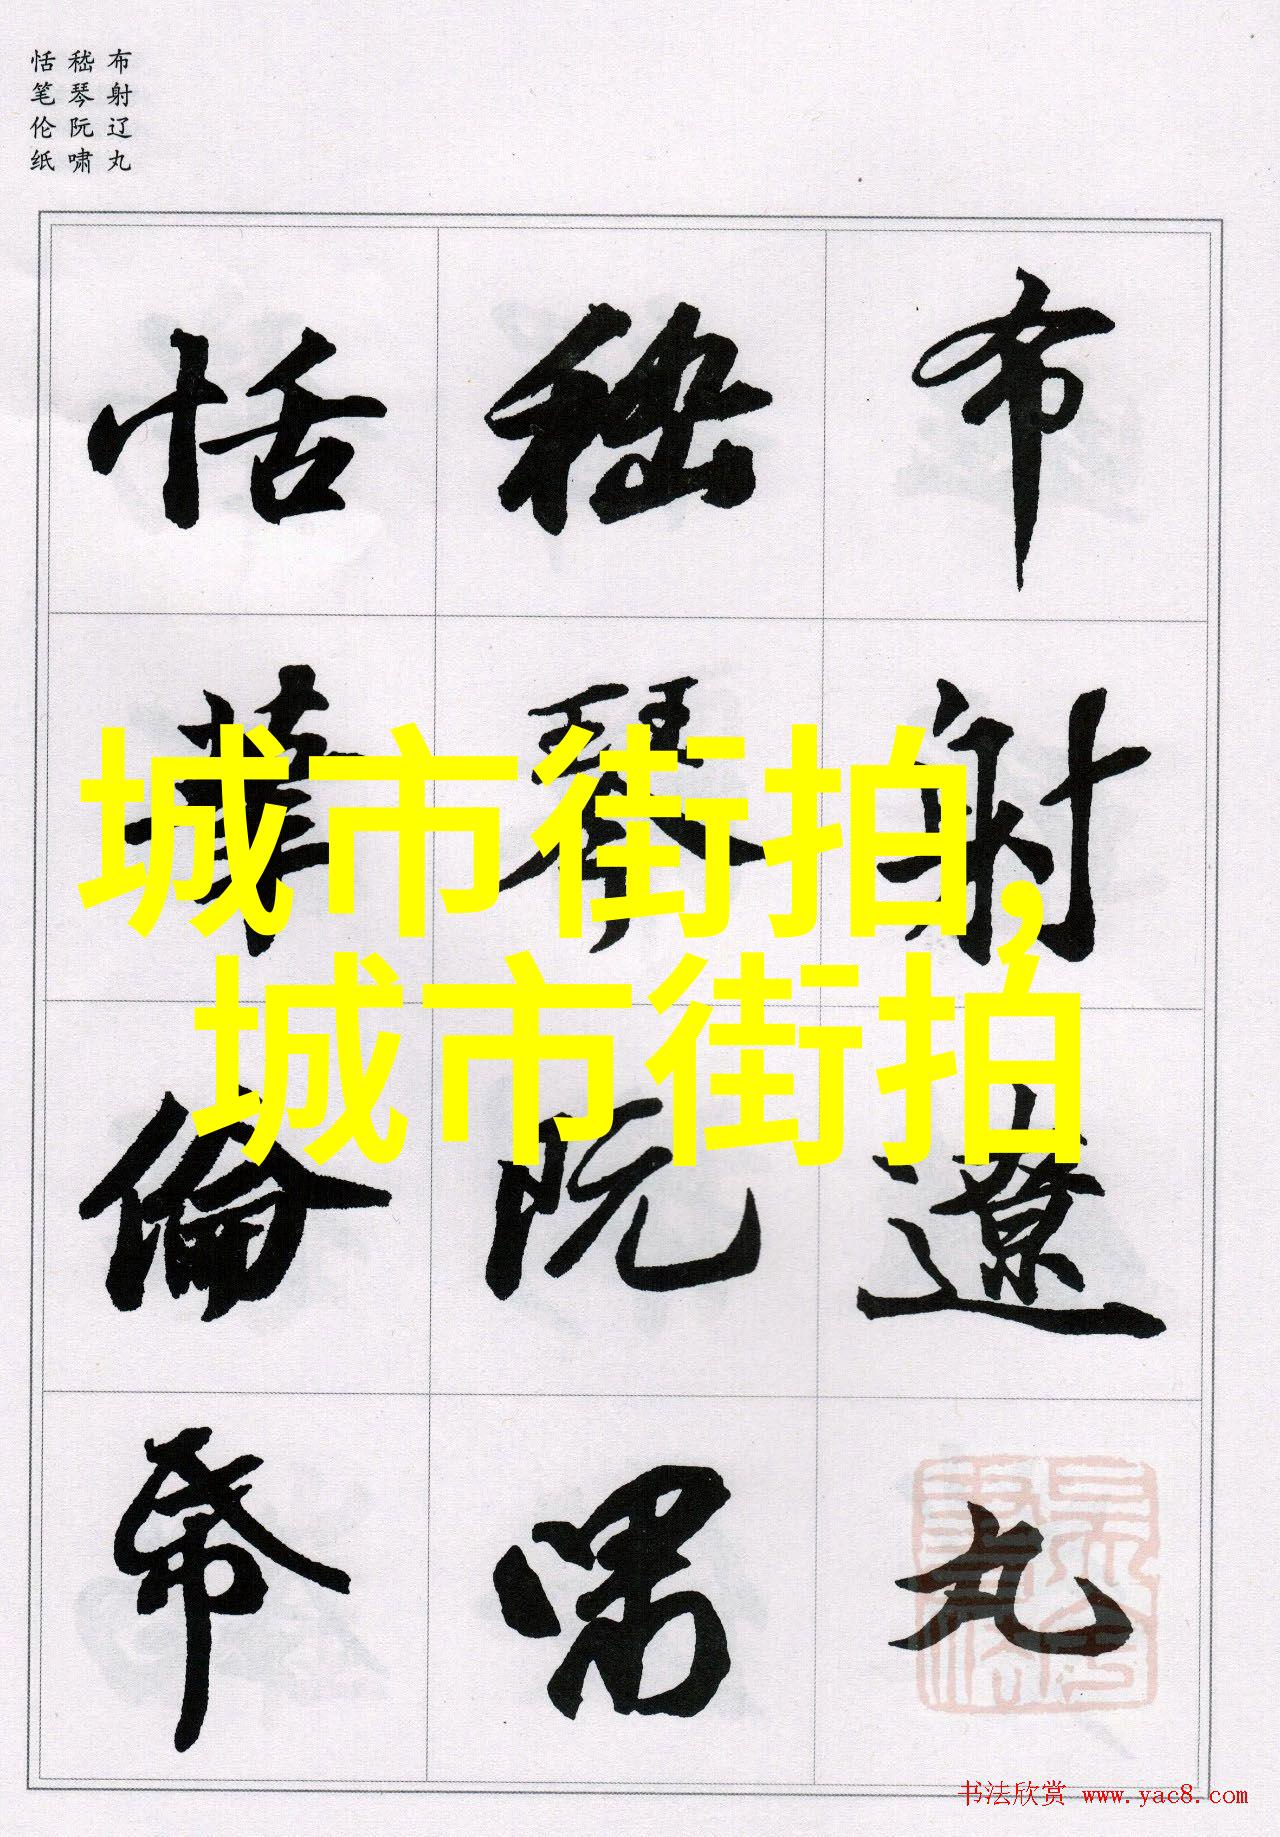 布射辽丸
嵇琴阮啸
恬笔伦纸
布射遼丸
嵇琴阮嘯
恬筆倫帋
城市街拍,
城市街拍
书法欣赏 www.yac8.com